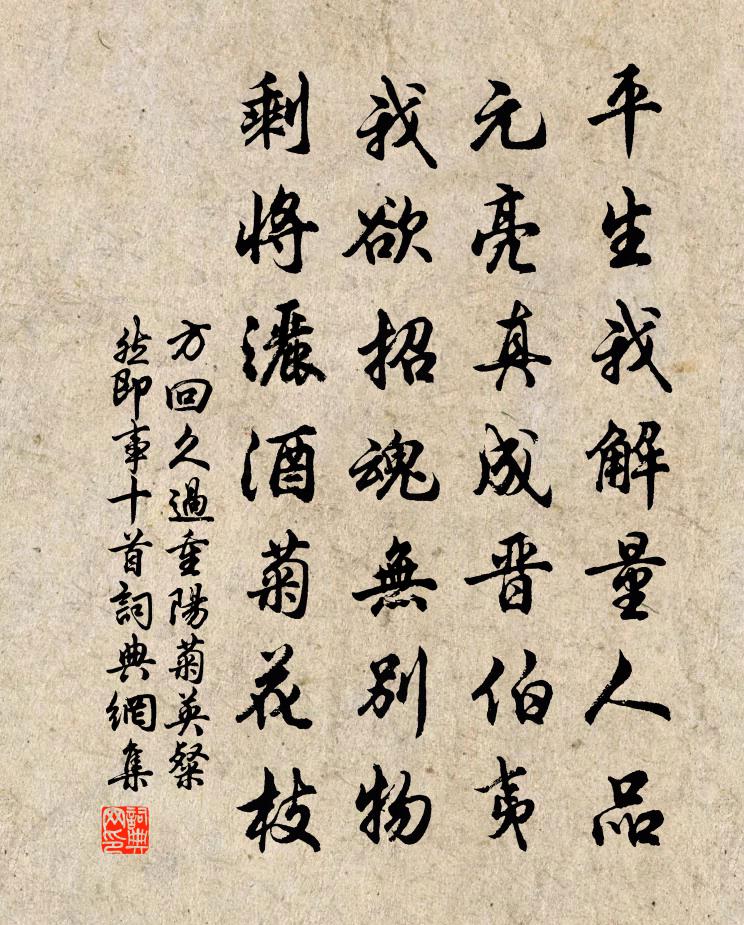 平生我解量人品
元亮真成晋伯夷
我欲招魂無别物
剩將灑酒菊花枝
方回久過重陽菊英粲
然即事十首詞典網集
詞典
网印